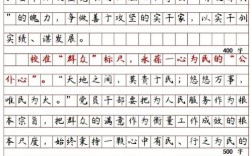 ”的魄力，争做善于攻坚的实干家，以实干创
实绩、谋发展。
400字
校准“群众”标尺，永葆一心为民的“公
仆心”。“天地之间，莫贵于民；悠悠万事，
唯民为大。”党员干部要把为人民服务作为根
本宗旨，把群众的满意作为衡量工作成效的根
本尺度，始终秉持一颗心中有民、行之为民的
500字